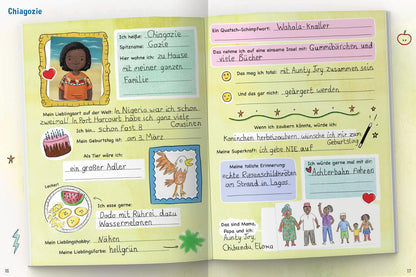 Chiagozie
Ich heiße: Chiagozie
Spitzname: Gozie
Hier wohne ich: zu Hause
mit meiner ganzen
Familie
Mein Lieblingsort auf der Welt: In Nigeria war ich schon
zweimal! In Port Harcourt habe ich ganz viele
Cousinen
Ich bin... schon fast 8
Mein Geburtstag ist: am 3. März
Als Tier wäre ich:
ein großer Adler
Lecker!
Ich esse gerne:
Dodo mit Rührei, dazu
Wassermelonen
Mein Lieblingshobby: Nähen
Meine Lieblingsfarbe: hellgrün
16
Ein Quatsch-Schimpfwort: Wahala-Knaller
Das nehme ich auf eine einsame Insel mit: Gummibärchen und
viele Bücher
Das mag ich total: mit Aunty Joy zusammen sein
Und das gar nicht: geärgert werden
Wenn ich zaubern könnte, würde ich:
Kaninchen herbeizaubern, wünsche ich mir zum
Geburtstag
Meine Superkraft: ich gebe NIE auf
Meine tollste Erinnerung
echte Riesenschildkröten
am Strand in Lagos
Ich würde gerne mal mit dir:
Achterbahn fahren
Das sind Mama,
Papa und ich:
Aunty Joy,
Chibundu, Eloma
17